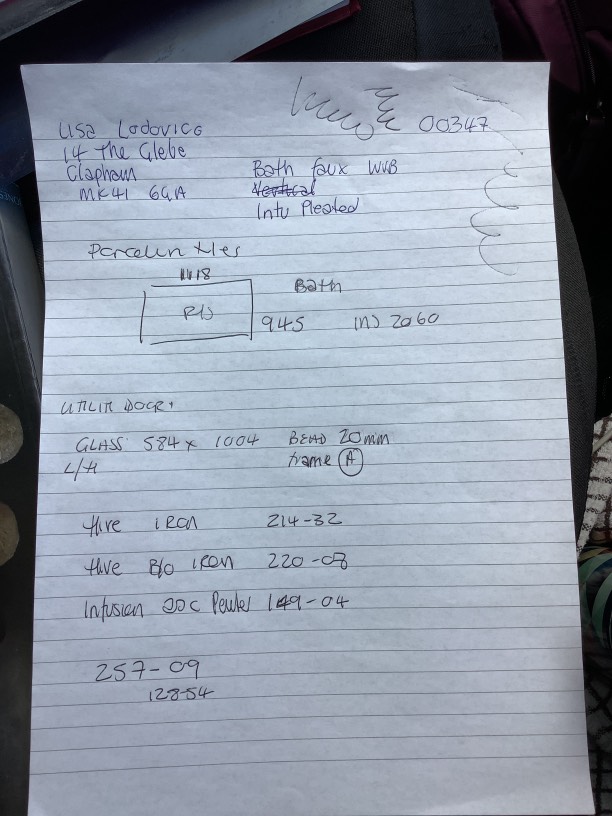 00347
Lisa Lodovico
14 The Glebe
Clapham
MK41 6GA
Bath faux WVB
Vertical
Intu Pleated
Porcelin tiles
1418
R/S
Bath
945 IN) 2060
UTILIT DOOR,
GLASS 584 x 1004 BEAD 20mm
L/H frame A
Hive IRON 214-32
Hive B/O IRON 220-08
Infusion ooc Pewter 149-04
257-09
128-54